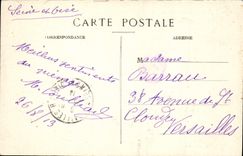 Seine et Oise
CARTE POSTALE
CORRESPONDANCE
ADRESSE
Meilleurs sentiments
du ménage
26/8/13
Madame
Barrau
38 Avenue de St
Cloud
Versailles